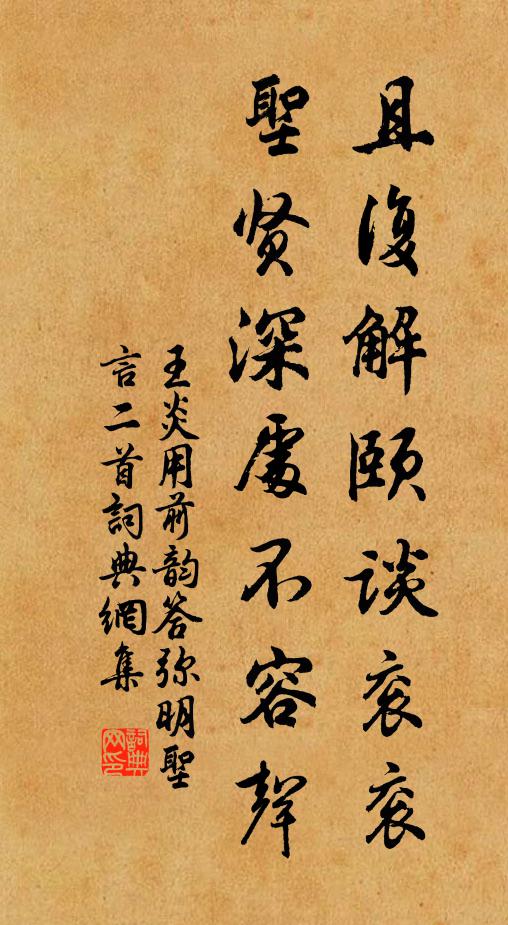 且復解頤談衮衮
聖贤深處不容聲
王炎用前韵答弥明聖
言二首詞典網集
詞典网印